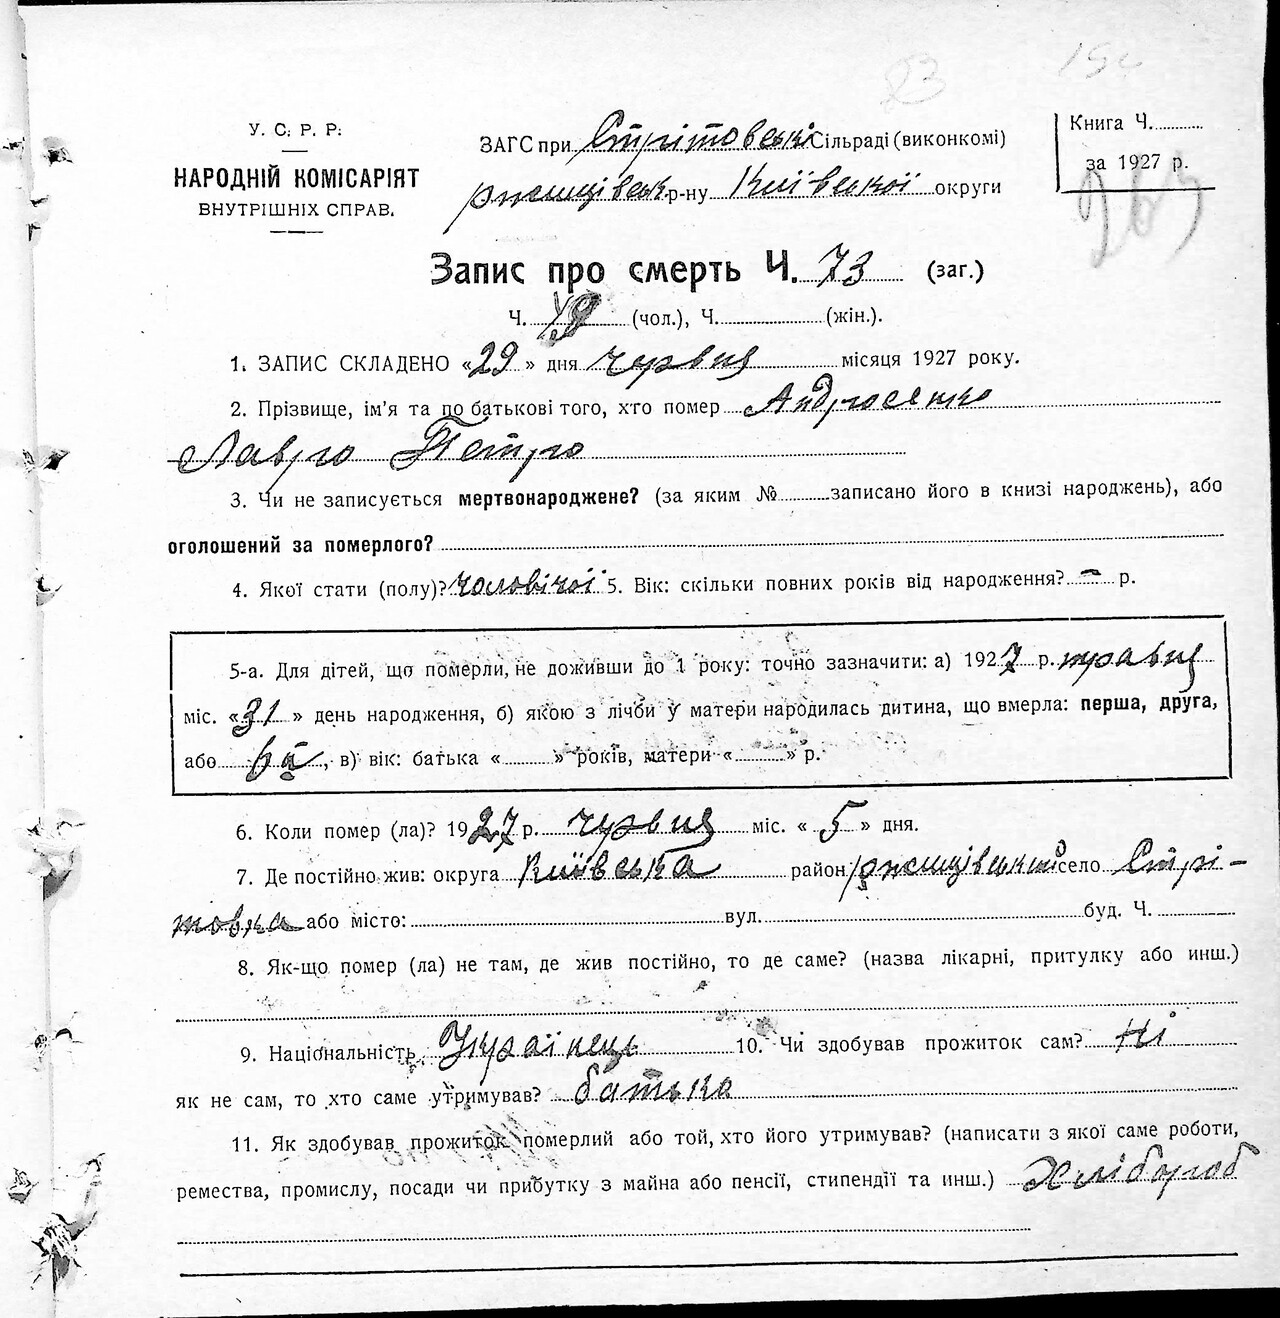 23 15с
У. С. Р. Р.
НАРОДНІЙ КОМІСАРІЯТ
ВНУТРІШНІХ СПРАВ.
ЗАГС при Стрітовські Сільраді (виконкомі)
ржищівськ р-ну Київської округи
Книга Ч.
за 1927 р.
263
Запис про смерть Ч. 73 (заг.)
Ч. (чол.), Ч. (жін.).
1. ЗАПИС СКЛАДЕНО «29» дня червня місяця 1927 року.
2. Прізвище, ім'я та по батькові того, хто помер Андросенко
Лавро Петро
3. Чи не записується мертвонароджене? (за яким № записано його в книзі народжень), або
оголошений за померлого?
4. Якої стати (полу)? чоловічої 5. Вік: скільки повних років від народження? – р.
5-а. Для дітей, що померли, не доживши до 1 року: точно зазначити: а) 1927 р. травня
міс. «31» день народження, б) якою з лічби у матери народилась дитина, що вмерла: перша, друга,
або 6а, в) вік: батька « » років, матери « » р.
6. Коли помер (ла)? 1927 р. червня міс. «5» дня.
7. Де постійно жив: округа Київська район ржищівський село Стрі-
товка або місто: вул. буд. Ч.
8. Як-що помер (ла) не там, де жив постійно, то де саме? (назва лікарні, притулку або инш.)
9. Національність Українець 10. Чи здобував прожиток сам? Ні
як не сам, то хто саме утримував? батько
11. Як здобував прожиток померлий або той, хто його утримував? (написати з якої саме роботи,
ремества, промислу, посади чи прибутку з майна або пенсії, стипендії та инш.) Хлібороб